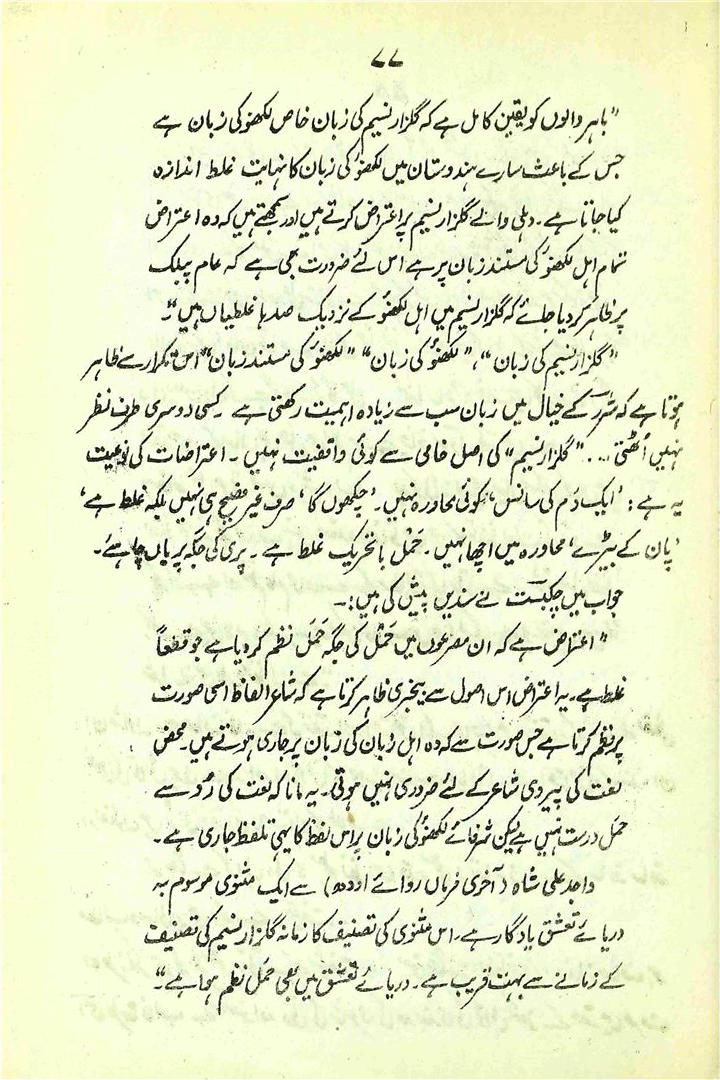 ۷۷
"باہر والوں کو یقین کامل ہے کہ گلزار نسیم کی زبان خاص لکھنؤ کی زبان ہے
جس کے باعث سارے ہندوستان میں لکھنؤ کی زبان کا نہایت غلط اندازہ
کیا جاتا ہے۔ دہلی والے گلزار نسیم پر اعتراض کرتے ہیں اور سمجھتے ہیں کہ وہ اعتراض
تمام اہل لکھنؤ کی مستند زبان پر ہے اس لئے ضرورت بھی ہے کہ عام پبلک
پر ظاہر کر دیا جائے کہ گلزار نسیم میں اہل لکھنؤ کے نزدیک صدہا غلطیاں ہیں"۔
"گلزار نسیم کی زبان"، "لکھنؤ کی زبان" "لکھنؤ کی مستند زبان" اس تکرار سے ظاہر
ہوتا ہے کہ شرر کے خیال میں زبان سب سے زیادہ اہمیت رکھتی ہے۔ کسی دوسری طرف نظر
نہیں اُٹھتی .... "گلزار نسیم" کی اصل خامی سے کوئی واقفیت نہیں۔ اعتراضات کی نوعیت
یہ ہے: 'ایک دُم کی سانس' کوئی محاورہ نہیں۔ 'چکھوں گا' صرف غیر فصیح ہی نہیں بلکہ غلط ہے'
'پان کے بیڑے' محاورہ میں اچھا نہیں۔ حَمْل بالتحریک غلط ہے۔ پری کی جگہ پریاں چاہئے۔
جواب میں چکبست نے سندیں پیش کی ہیں:۔
"اعتراض ہے کہ ان مصرعوں میں حَمْل کی جگہ حَمَل نظم کر دیا ہے جو قطعاً
غلط ہے۔ یہ اعتراض اس اصول سے بیخبری ظاہر کرتا ہے کہ شاعر الفاظ اسی صورت
پر نظم کرتا ہے جس صورت سے کہ وہ اہل زبان کی زبان پر جاری ہوتے ہیں۔ محض
لغت کی پیروی شاعر کے لئے ضروری نہیں ہوتی۔ یہ مانا کہ لغت کی رُو سے
حمَل درست نہیں ہے لیکن شرفائے لکھنؤ کی زبان پر اس لفظ کا یہی تلفظ جاری ہے۔
واجد علی شاہ (آخری فرماں روائے اودھ) سے ایک مثنوی موسوم بہ
دریائے تعشق یادگار ہے۔ اس مثنوی کی تصنیف کا زمانہ گلزار نسیم کی تصنیف
کے زمانے سے بہت قریب ہے۔ دریائے تعشق میں بھی حمَل نظم ہوا ہے"